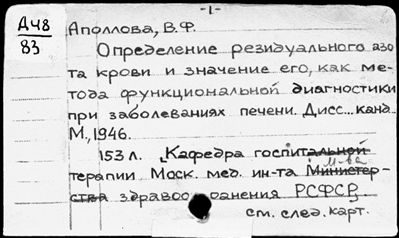 -1-
Д48
83
Аполлова, В.Ф.
Определение резидуального азо
та крови и значение его, как ме-
тода функциональной диагностики
при заболеваниях печени. Дисс... канд..
М., 1946.
153 л. Кафедра госпитальной
м-ва
терапии Моск. мед. ин-та Министер-
ства здравоо ранения РСФСР
см. след. карт.